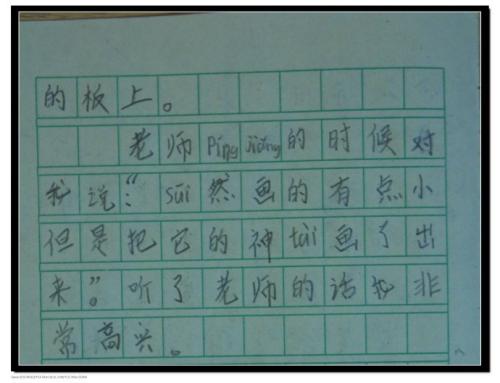 的板上。
老师píng jiǎng的时候对
我说：“suī然画的有点小
但是把它的神tài画了出
来”。听了老师的话我非
常高兴。